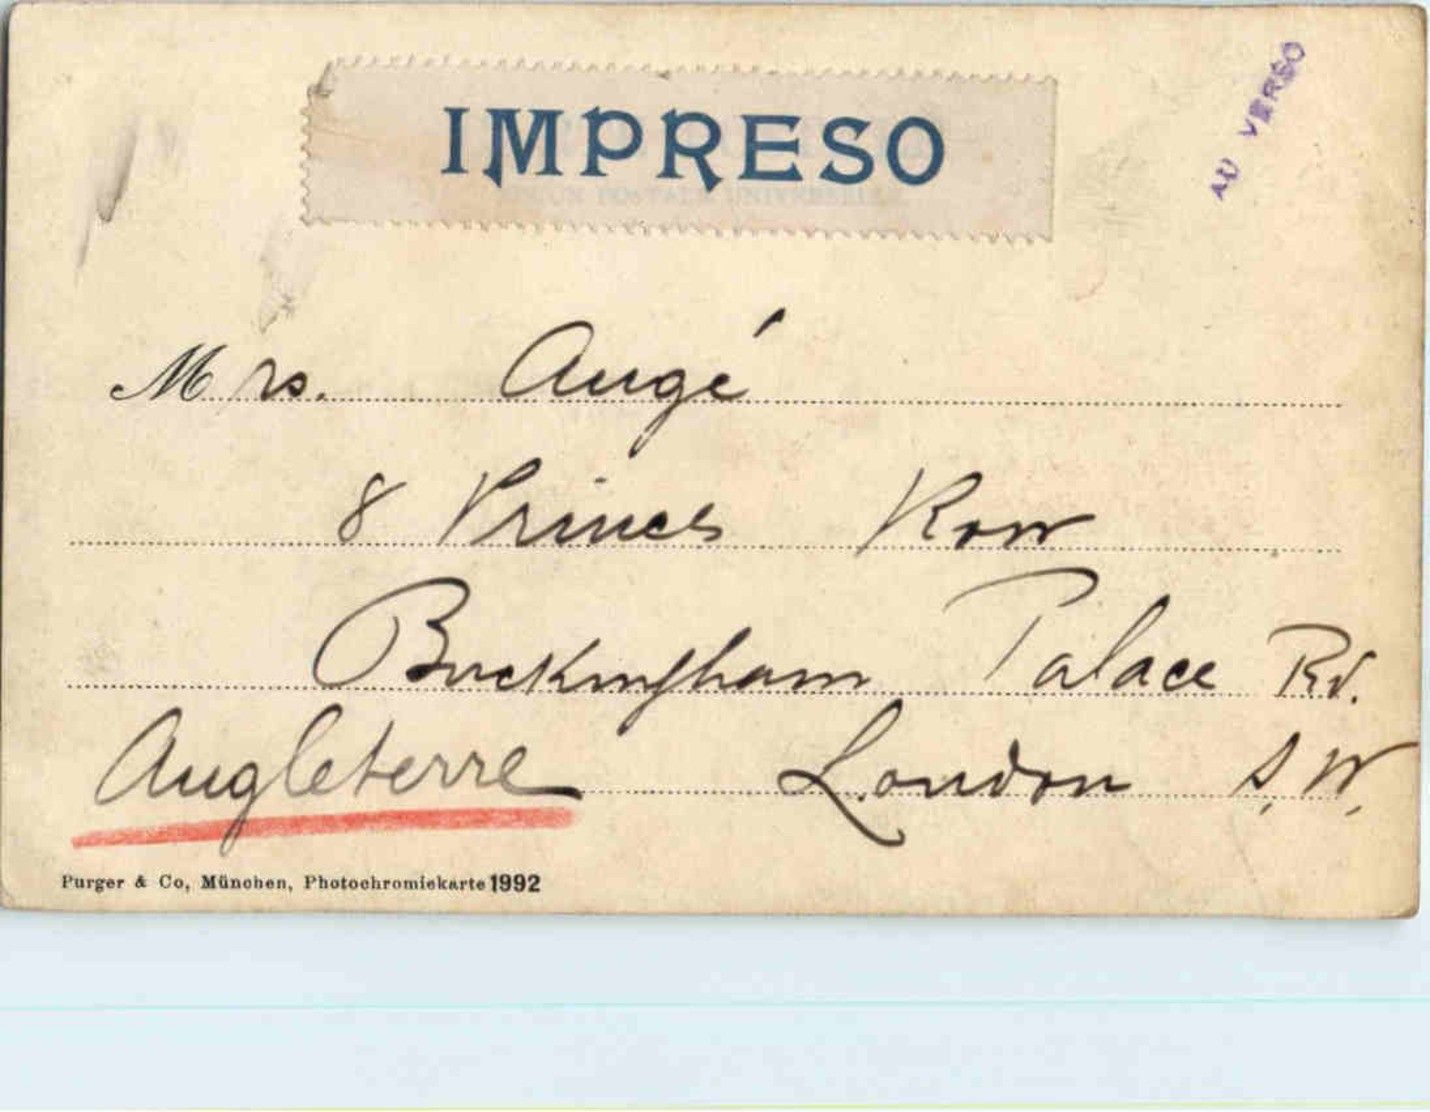 IMPRESO
UNION POSTALE UNIVERSELLE
AU VERSO
Mrs. Augé
8 Princes Row
Buckingham Palace Rd.
Angleterre London S.W.
Purger & Co, München, Photochromiekarte 1992